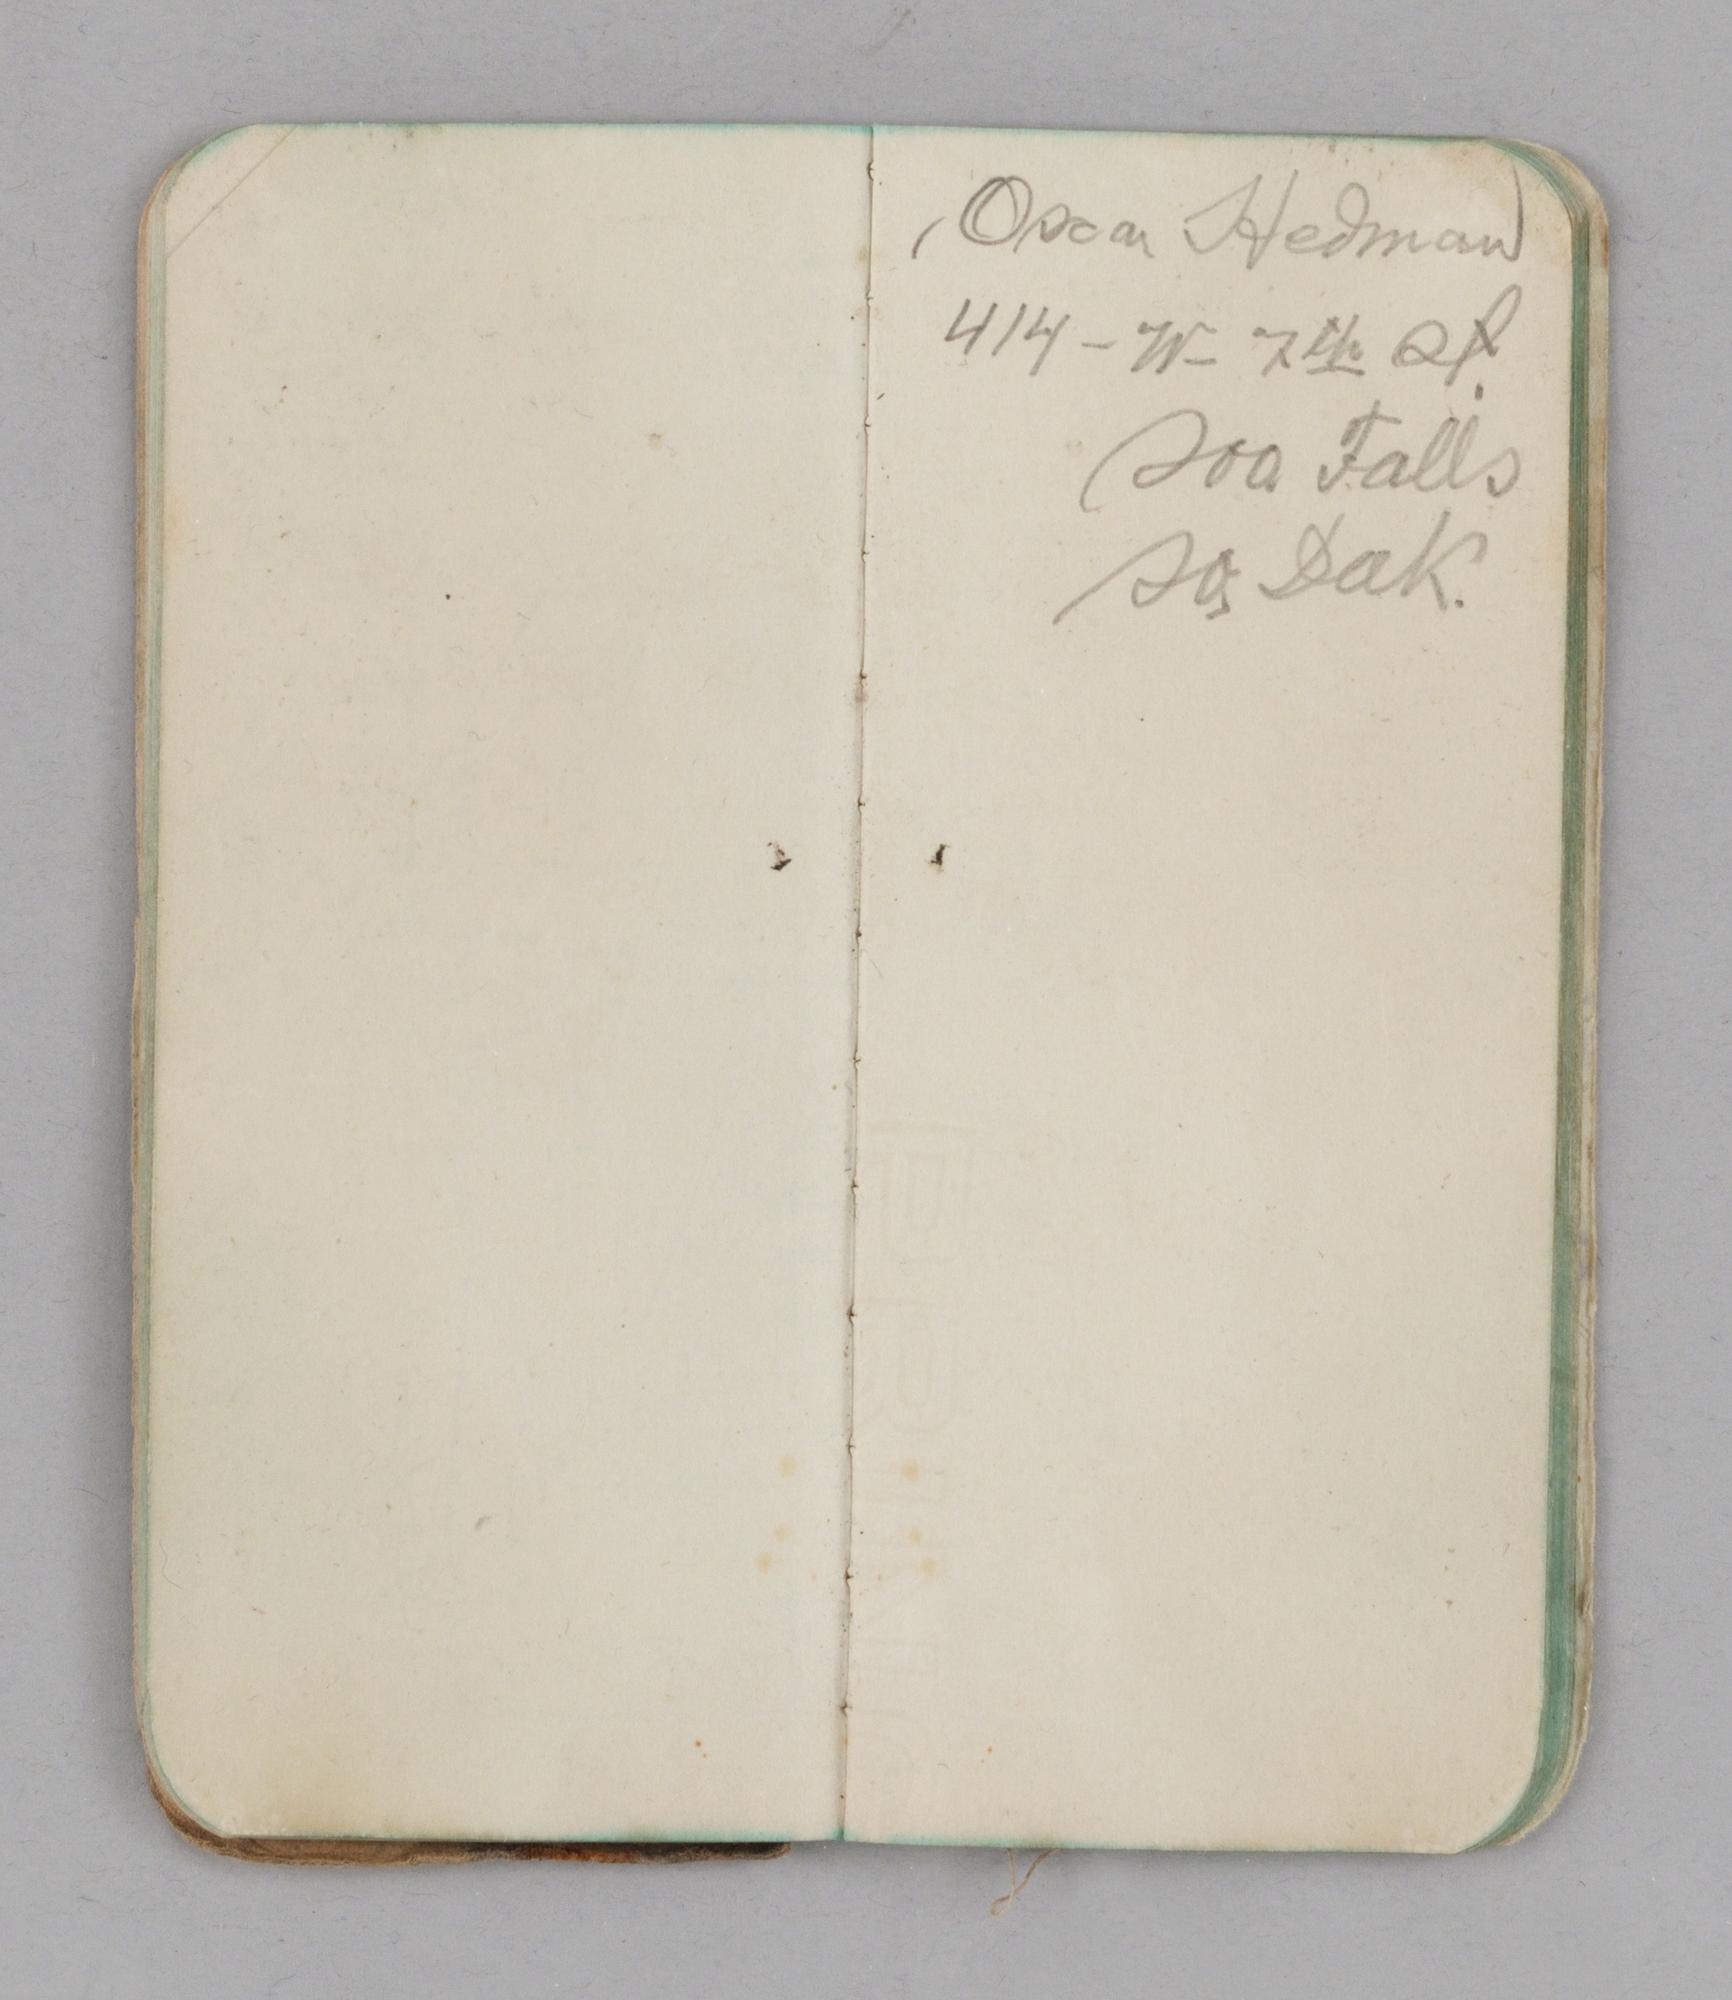 Oscar Hedman
414 - W - 7th St.
Soo Falls
So, Dak.